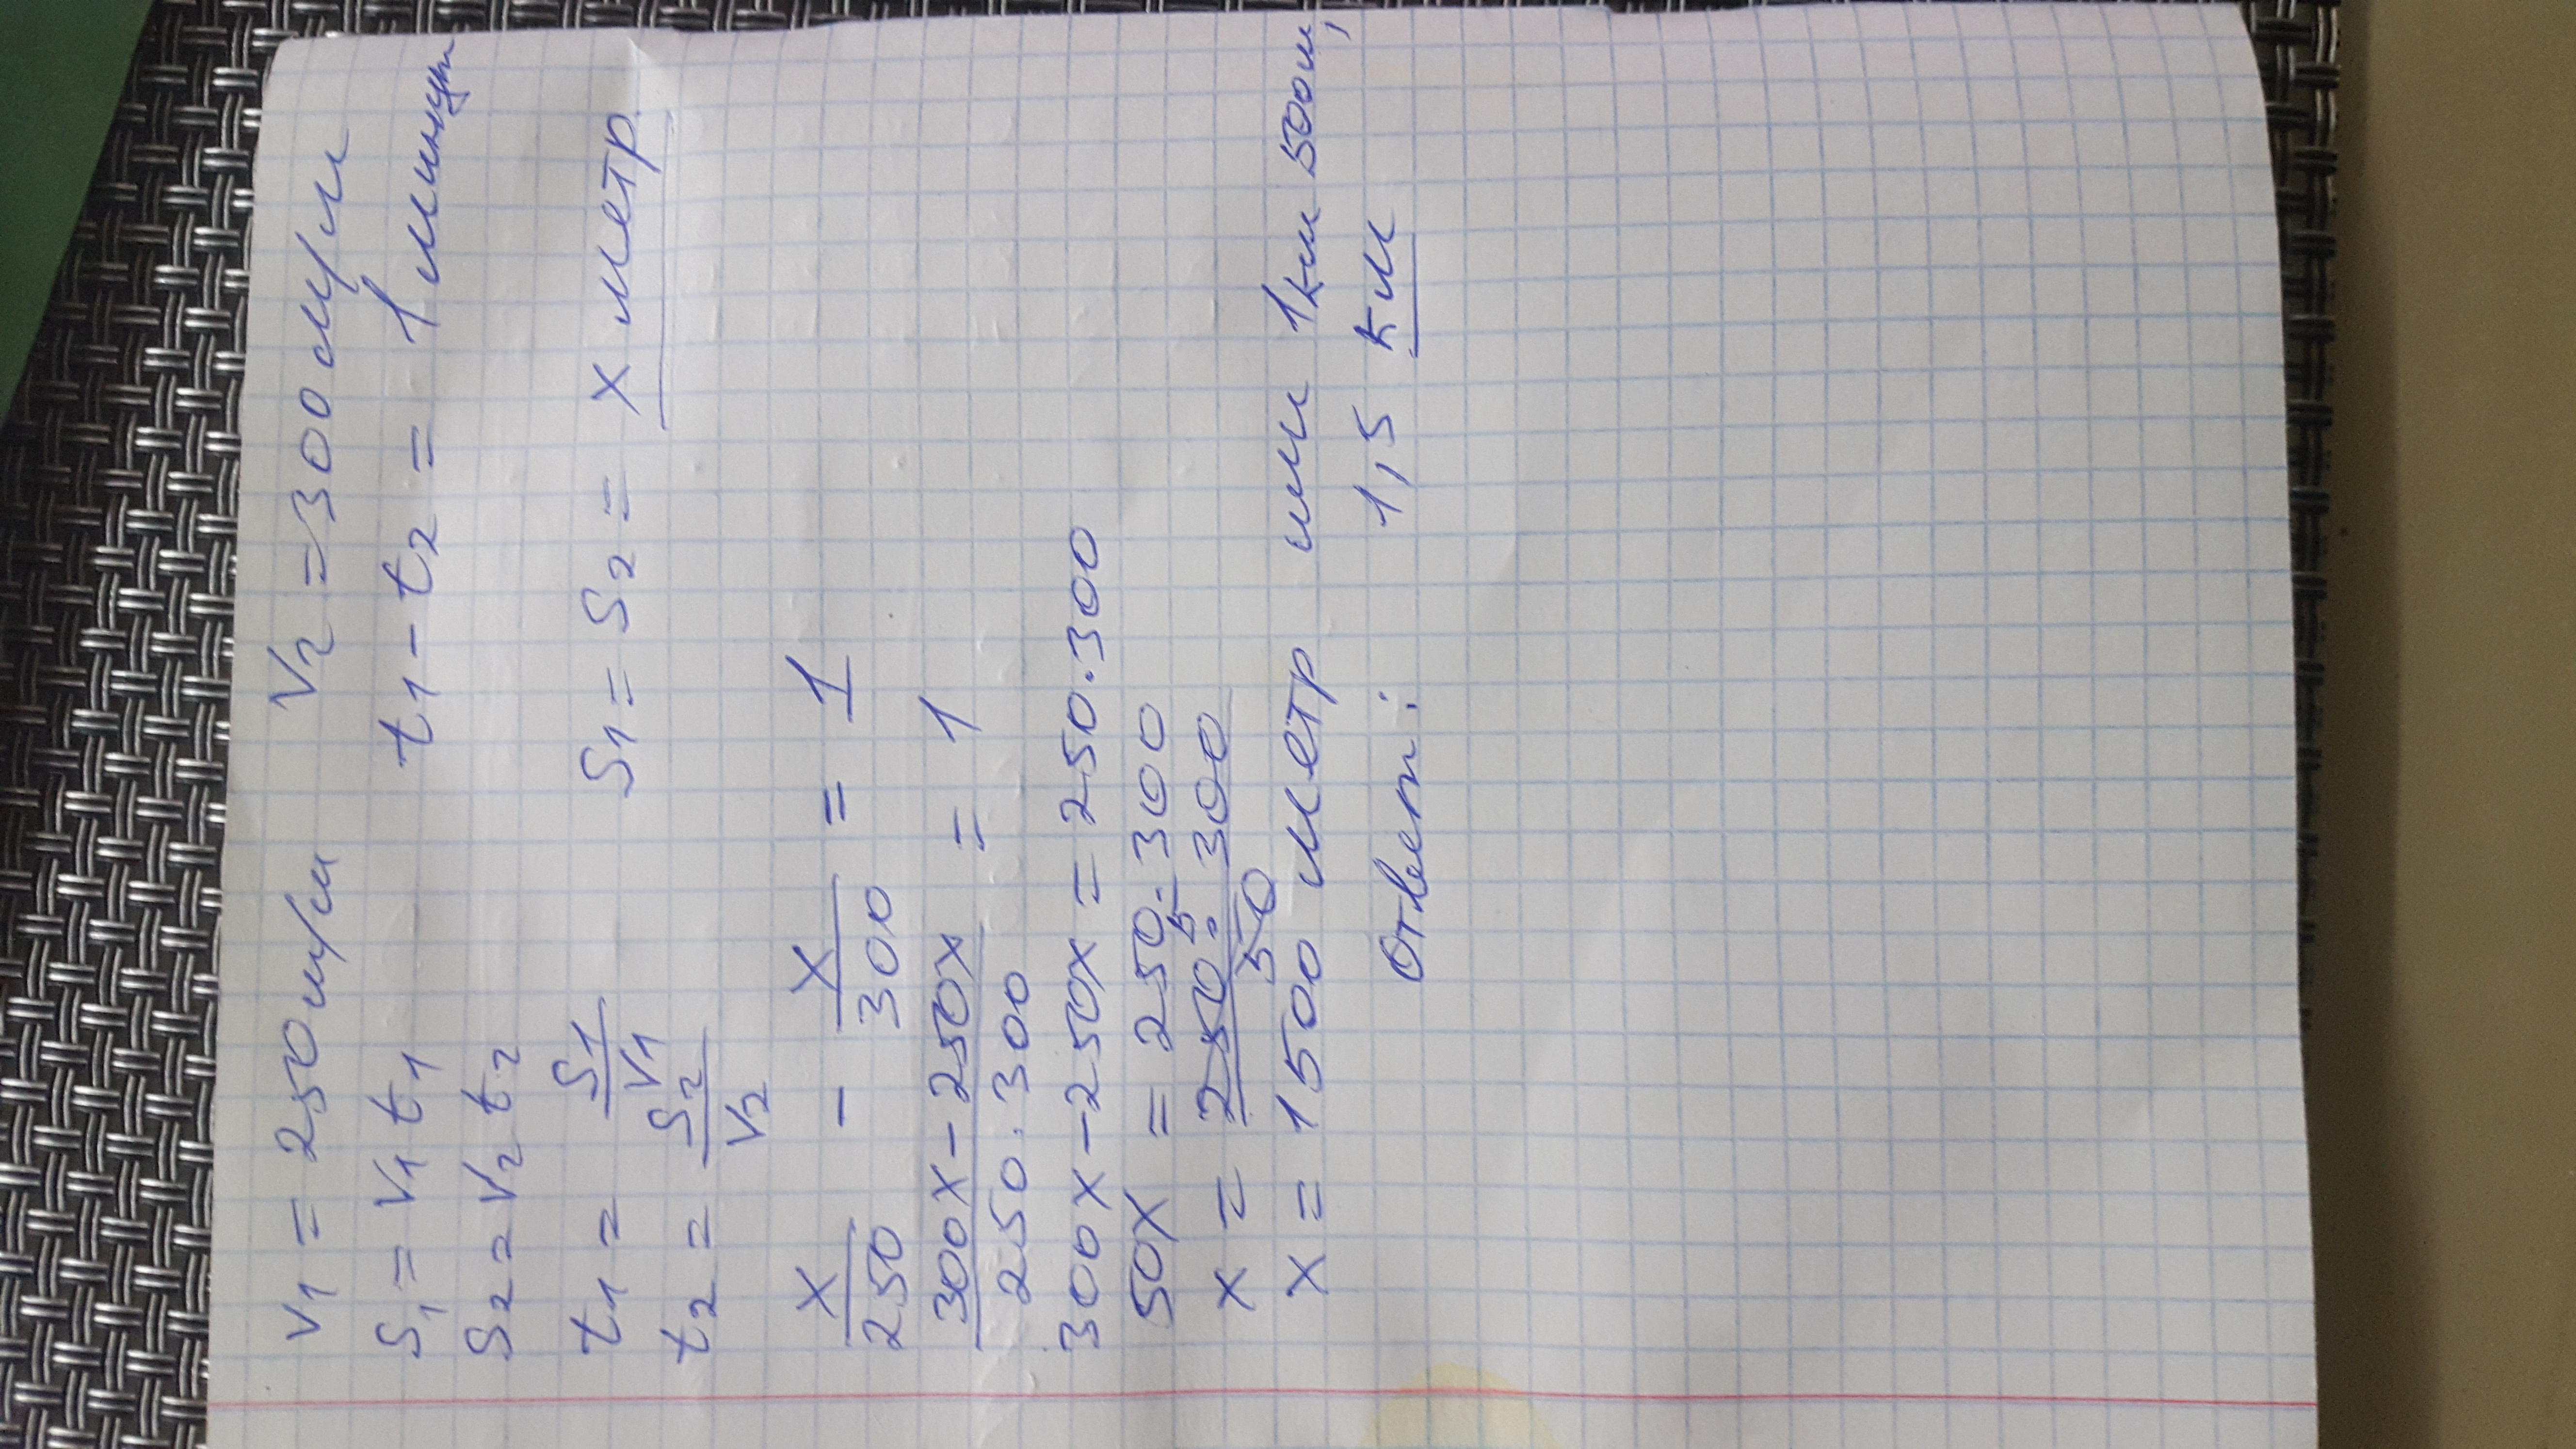 V1 = 250м/м V2 = 300м/м
S1 = V1 t1 t1 - t2 = 1 минут
S2 = V2 t2
t1 = S1/V1 S1 = S2 = x метр
t2 = S2/V2
x/250 - x/300 = 1
300x - 250x / 250·300 = 1
300x - 250x = 250·300
50x = 250·300
x = 250·300 / 50 5
x = 1500 метр или 1км 500м,
Ответ: 1,5 км